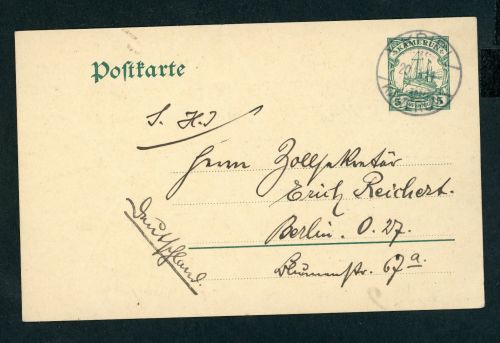 KAMERUN
5 5
Postkarte
S. H. J
Herrn Zollsekretär
Erich Reichert.
Berlin. O. 27.
Blumenstr. 67a.
Deutschland.